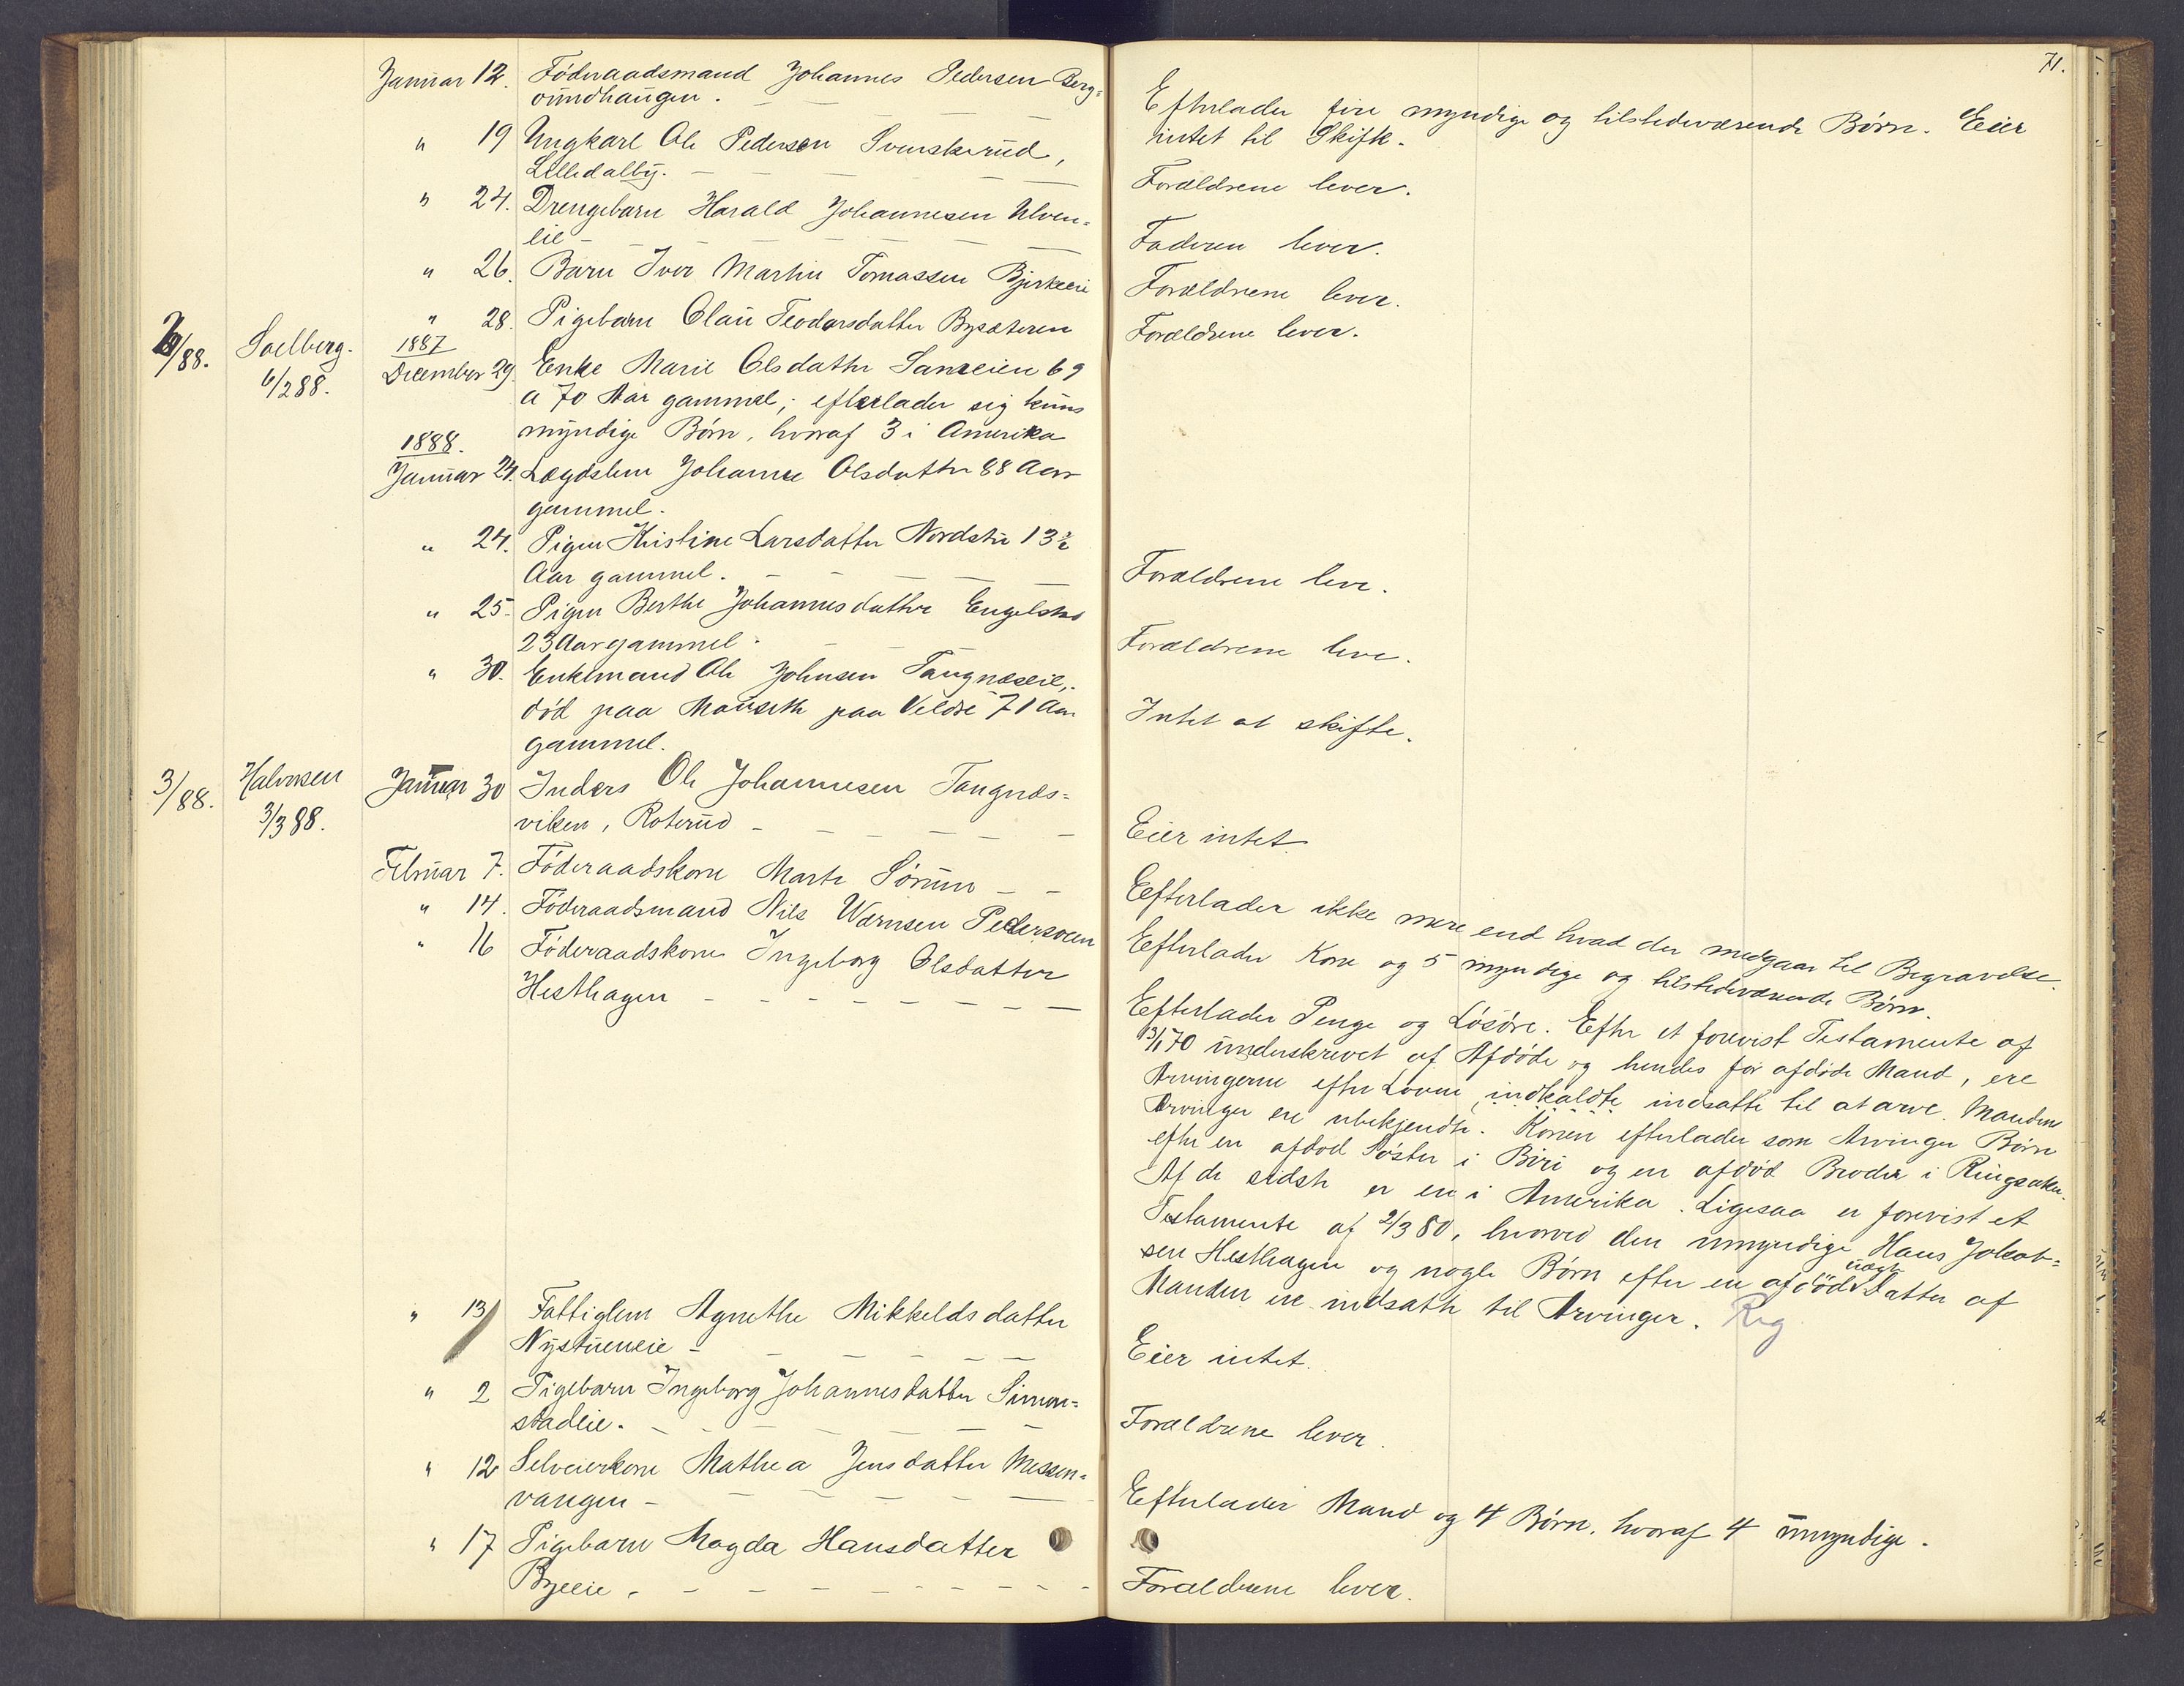 71.
Januar 12. Föderaadsmand Johannes Pedersen Berg=
rundhaugen. — —
Efterlader fire myndige og tilstedeværende Børn. Eier
intet til Skifte.
" 19 Ungkarl Ole Pedersen Svenskerud,
Lilledalby. — — — —
Forældrene lever.
" 24. Drengebarn Harald Johannesen Ulven=
eie — — — — —
Faderen lever.
" 26. Barn Iver Martin Tomassen Bjerkeeie
Forældrene lever.
" 28. Pigebarn Olau Teodorsdatter Bysæteren
Forældrene lever.
/88. Soelberg. 1887
6/2 88. December 29. Enke Marie Olsdatter 69
a 70 Aar gammel; efterlader sig kuns
myndige Børn, hvoraf 3 i Amerika
1888.
Januar 24. Lægdslem Johanne Olsdatter 88 Aar
gammel.
" 24. Pigen Kristine Larsdatter Nordstu 13½
Aar gammel. — — — — —
Forældrene leve.
" 25. Pigen Berthe Johannesdatter Engelstad
23 Aar gammel. — —
Forældrene leve.
" 30. Enkemand Ole Johnsen Tangnæseie,
død paa paa Veldre 71 Aar
gammel.
Intet at skifte.
3/88. Halvorsen Januar 30 Inders Ole Johannesen Tangnæs=
3/3 88. viken, Roterud — — — — —
Eier intet
Februar 7. Föderaadskone Marte Sörum — —
Eefterlader ikke mere end hvad der medgaar til Begravelse.
" 14. Föderaadsmand Nils Pedersveen
Eefterlader Kone og 5 myndige og tilstedeværende Børn.
" 16 Föderaadskone Ingeborg Olsdatter
Hesthagen — — — — — — —
Eefterlader Penge og Løsøre. Efter et forevist Testamente af
13/1 70 underskrevet af Afdøde og hendes før afdøde Mand, ere
Arvingerne efter Loven indkaldte indsatte til at arve. Mandens
Arvinger ere ubekjendte. Konen efterlader som Arvinger Børn
efter en afdød Søster i Biri og en afdød Broder i Ringsaker.
Af de sidste er en i Amerika. Ligesaa er forevist et
Testamente af 2/3 80, hvorved den umyndige Hans Jakob=
sen Hesthagen og nogle Børn efter en afdöd uægte Datter af
Manden ere indsatte til Arvinger. Reg
" 13 Fattiglem Agnethe Mikkelsdatter
Nystueneie — — — — —
Eier intet.
" 2 Pigebarn Ingeborg Johannesdatter Simen=
stadeie. — — — — — —
Forældrene lever.
" 12 Selveierkone Mathea Jensdatter Messen=
vangen — — — — — —
Efterlader Mand og 4 Børn, hvoraf 4 umyndige.
" 17 Pigebarn Magda Hansdatter
Byeeie. — — — — — — — —
Forældrene lever.